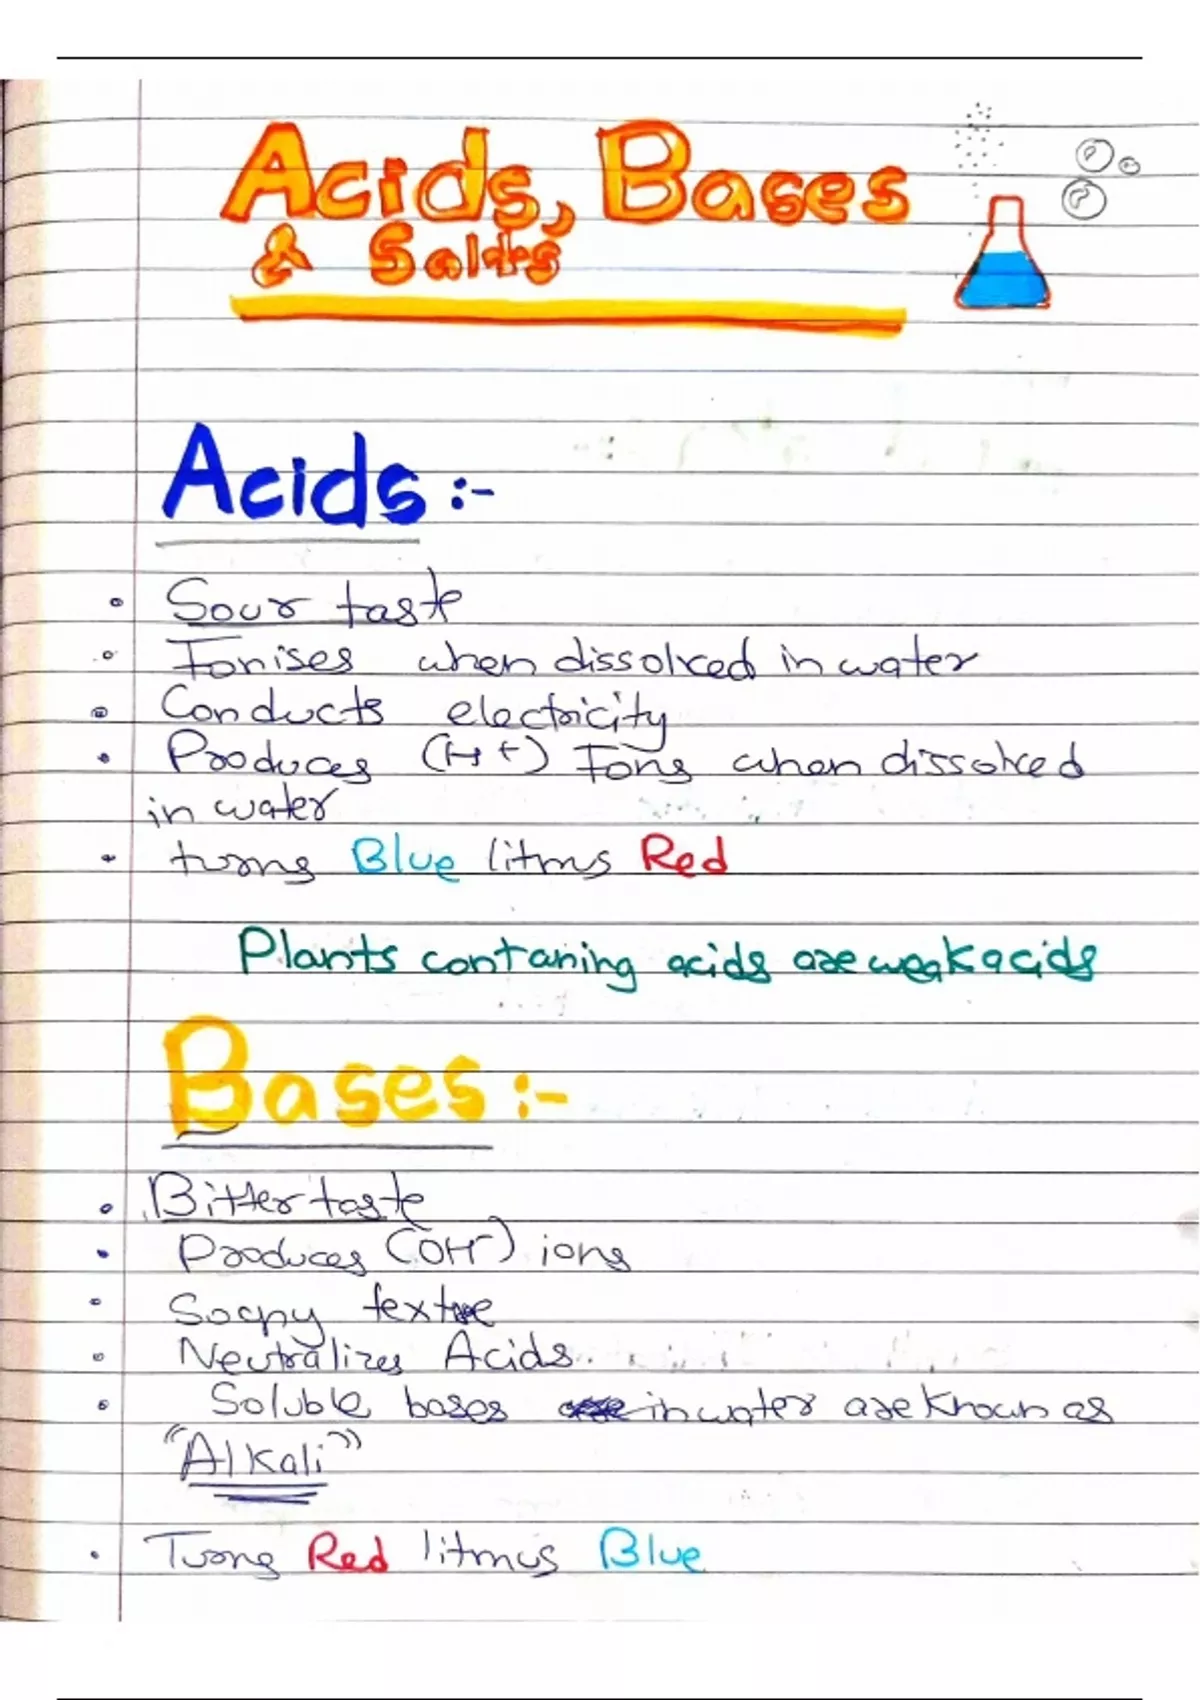 Acids, Bases
& Salts
Acids :-
Sour taste
Ionises when dissolved in water
Conducts electricity
Produces (H+) Ions when dissolved
in water
turns Blue litmus Red
Plants contaning acids are weak acids
Bases :-
Bitter taste
Produces (OH-) ions
Soapy texture
Neutralizes Acids.
Soluble bases in water are known as
"Alkali"
Turns Red litmus Blue